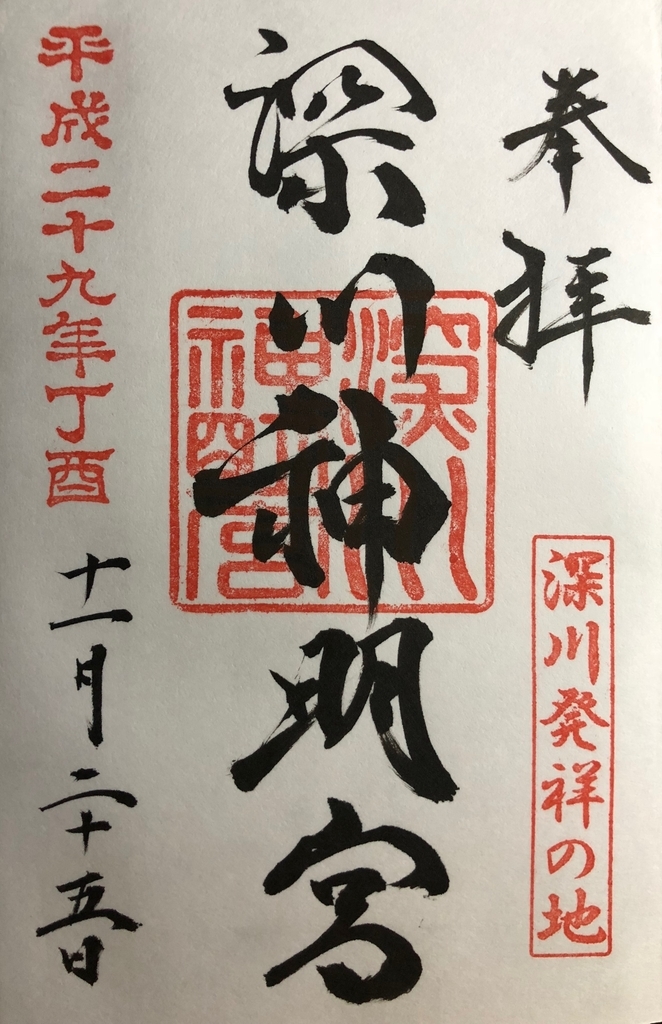 奉拝
深川発祥の地
深川神明宮
深川神明宮
平成二十九年丁酉
十一月二十五日